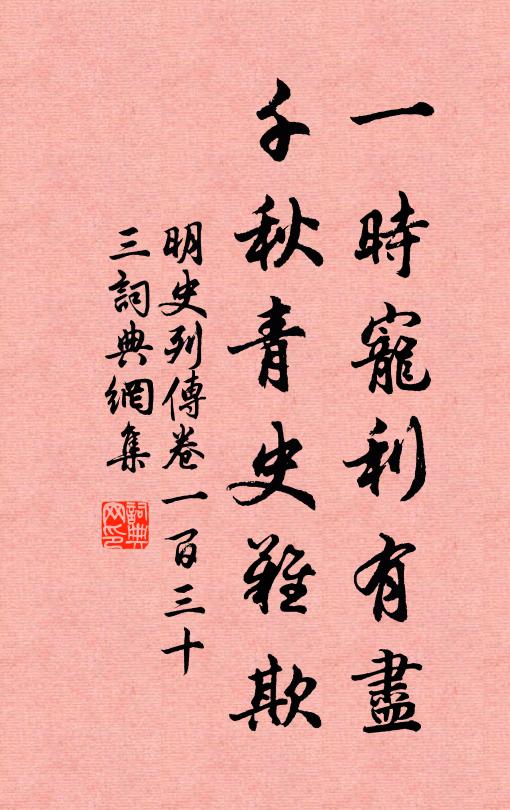 一時寵利有盡
千秋青史難欺
明史列傳卷一百三十
三詞典網集
詞典网印